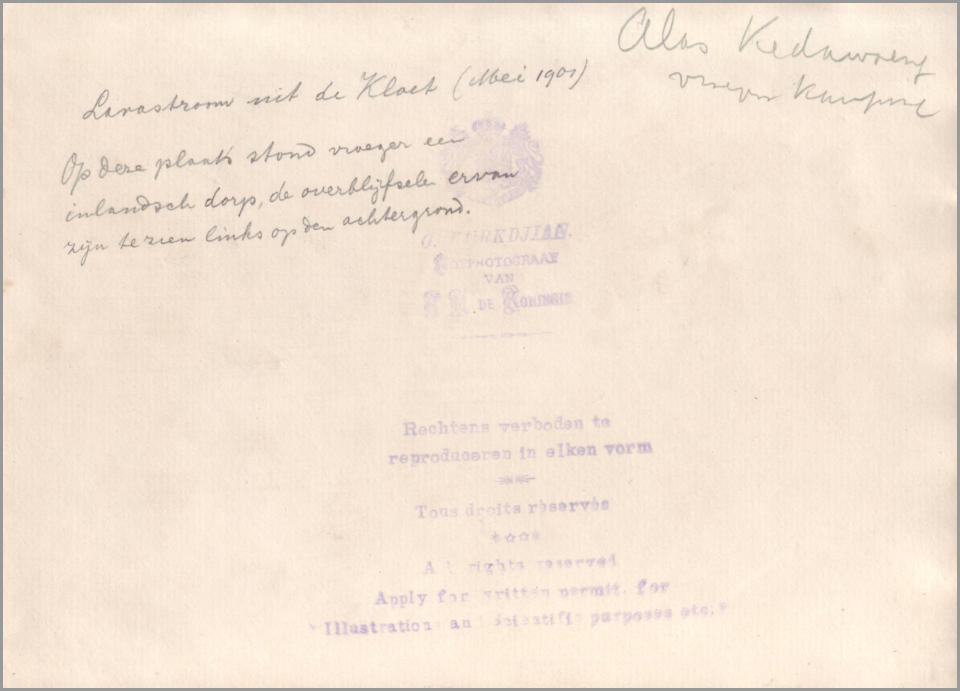 Alas Kedawoeng
vroeger Kampong
Lavastroom uit de Kloet (Mei 1901)
Op deze plaats stond vroeger een
inlandsch dorp, de overblijfselen ervan
zijn te zien links op den achtergrond.
O. KURKDJIAN.
HOFPHOTOGRAAF
VAN
H. M. DE KONINGIN
Rechtens verboden te
reproduceren in elken vorm
Tous droits réservés
All rights reserved
Apply for written permit. for
Illustrations and scientific purposes etc.